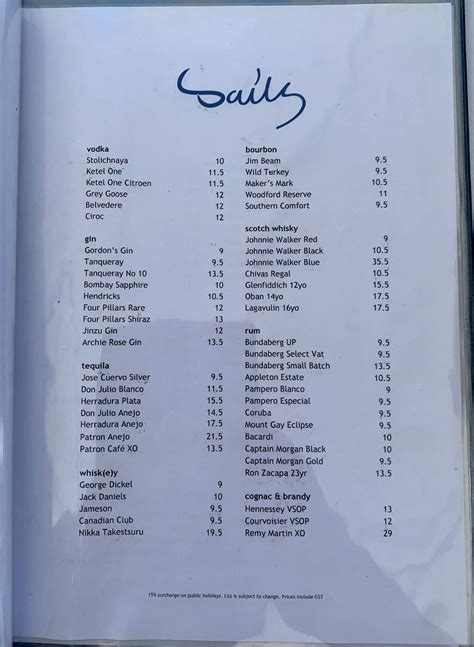 Sails
vodka
Stolichnaya 10
Ketel One 11.5
Ketel One Citroen 11.5
Grey Goose 12
Belvedere 12
Ciroc 12
gin
Gordon's Gin 9
Tanqueray 9.5
Tanqueray No 10 13.5
Bombay Sapphire 10
Hendricks 10.5
Four Pillars Rare 12
Four Pillars Shiraz 13
Jinzu Gin 12
Archie Rose Gin 13.5
tequila
Jose Cuervo Silver 9.5
Don Julio Blanco 11.5
Herradura Plata 15.5
Don Julio Anejo 14.5
Herradura Anejo 17.5
Patron Anejo 21.5
Patron Café XO 13.5
whisk(e)y
George Dickel 9
Jack Daniels 10
Jameson 9.5
Canadian Club 9.5
Nikka Taketsuru 19.5
bourbon
Jim Beam 9.5
Wild Turkey 9.5
Maker's Mark 10.5
Woodford Reserve 11
Southern Comfort 9.5
scotch whisky
Johnnie Walker Red 9
Johnnie Walker Black 10.5
Johnnie Walker Blue 35.5
Chivas Regal 10.5
Glenfiddich 12yo 15.5
Oban 14yo 17.5
Lagavulin 16yo 17.5
rum
Bundaberg UP 9.5
Bundaberg Select Vat 9.5
Bundaberg Small Batch 13.5
Appleton Estate 10.5
Pampero Blanco 9
Pampero Especial 9.5
Coruba 9.5
Mount Gay Eclipse 9.5
Bacardi 10
Captain Morgan Black 10
Captain Morgan Gold 9.5
Ron Zacapa 23yr 13.5
cognac & brandy
Hennessey VSOP 13
Courvoisier VSOP 12
Remy Martin XO 29
15% surcharge on public holidays. List is subject to change. Prices include GST